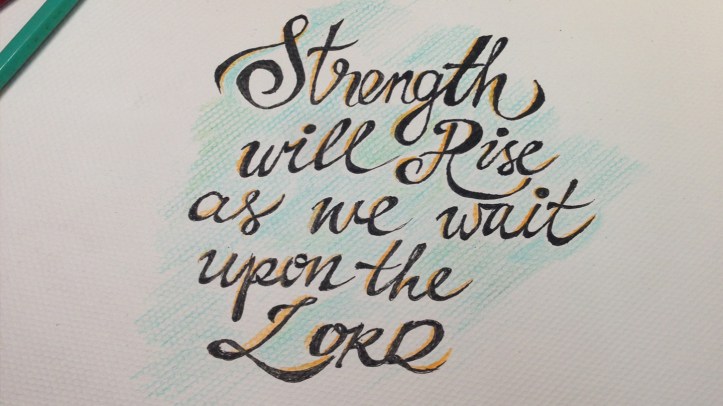 Strength
will Rise
as we wait
upon the
LORD